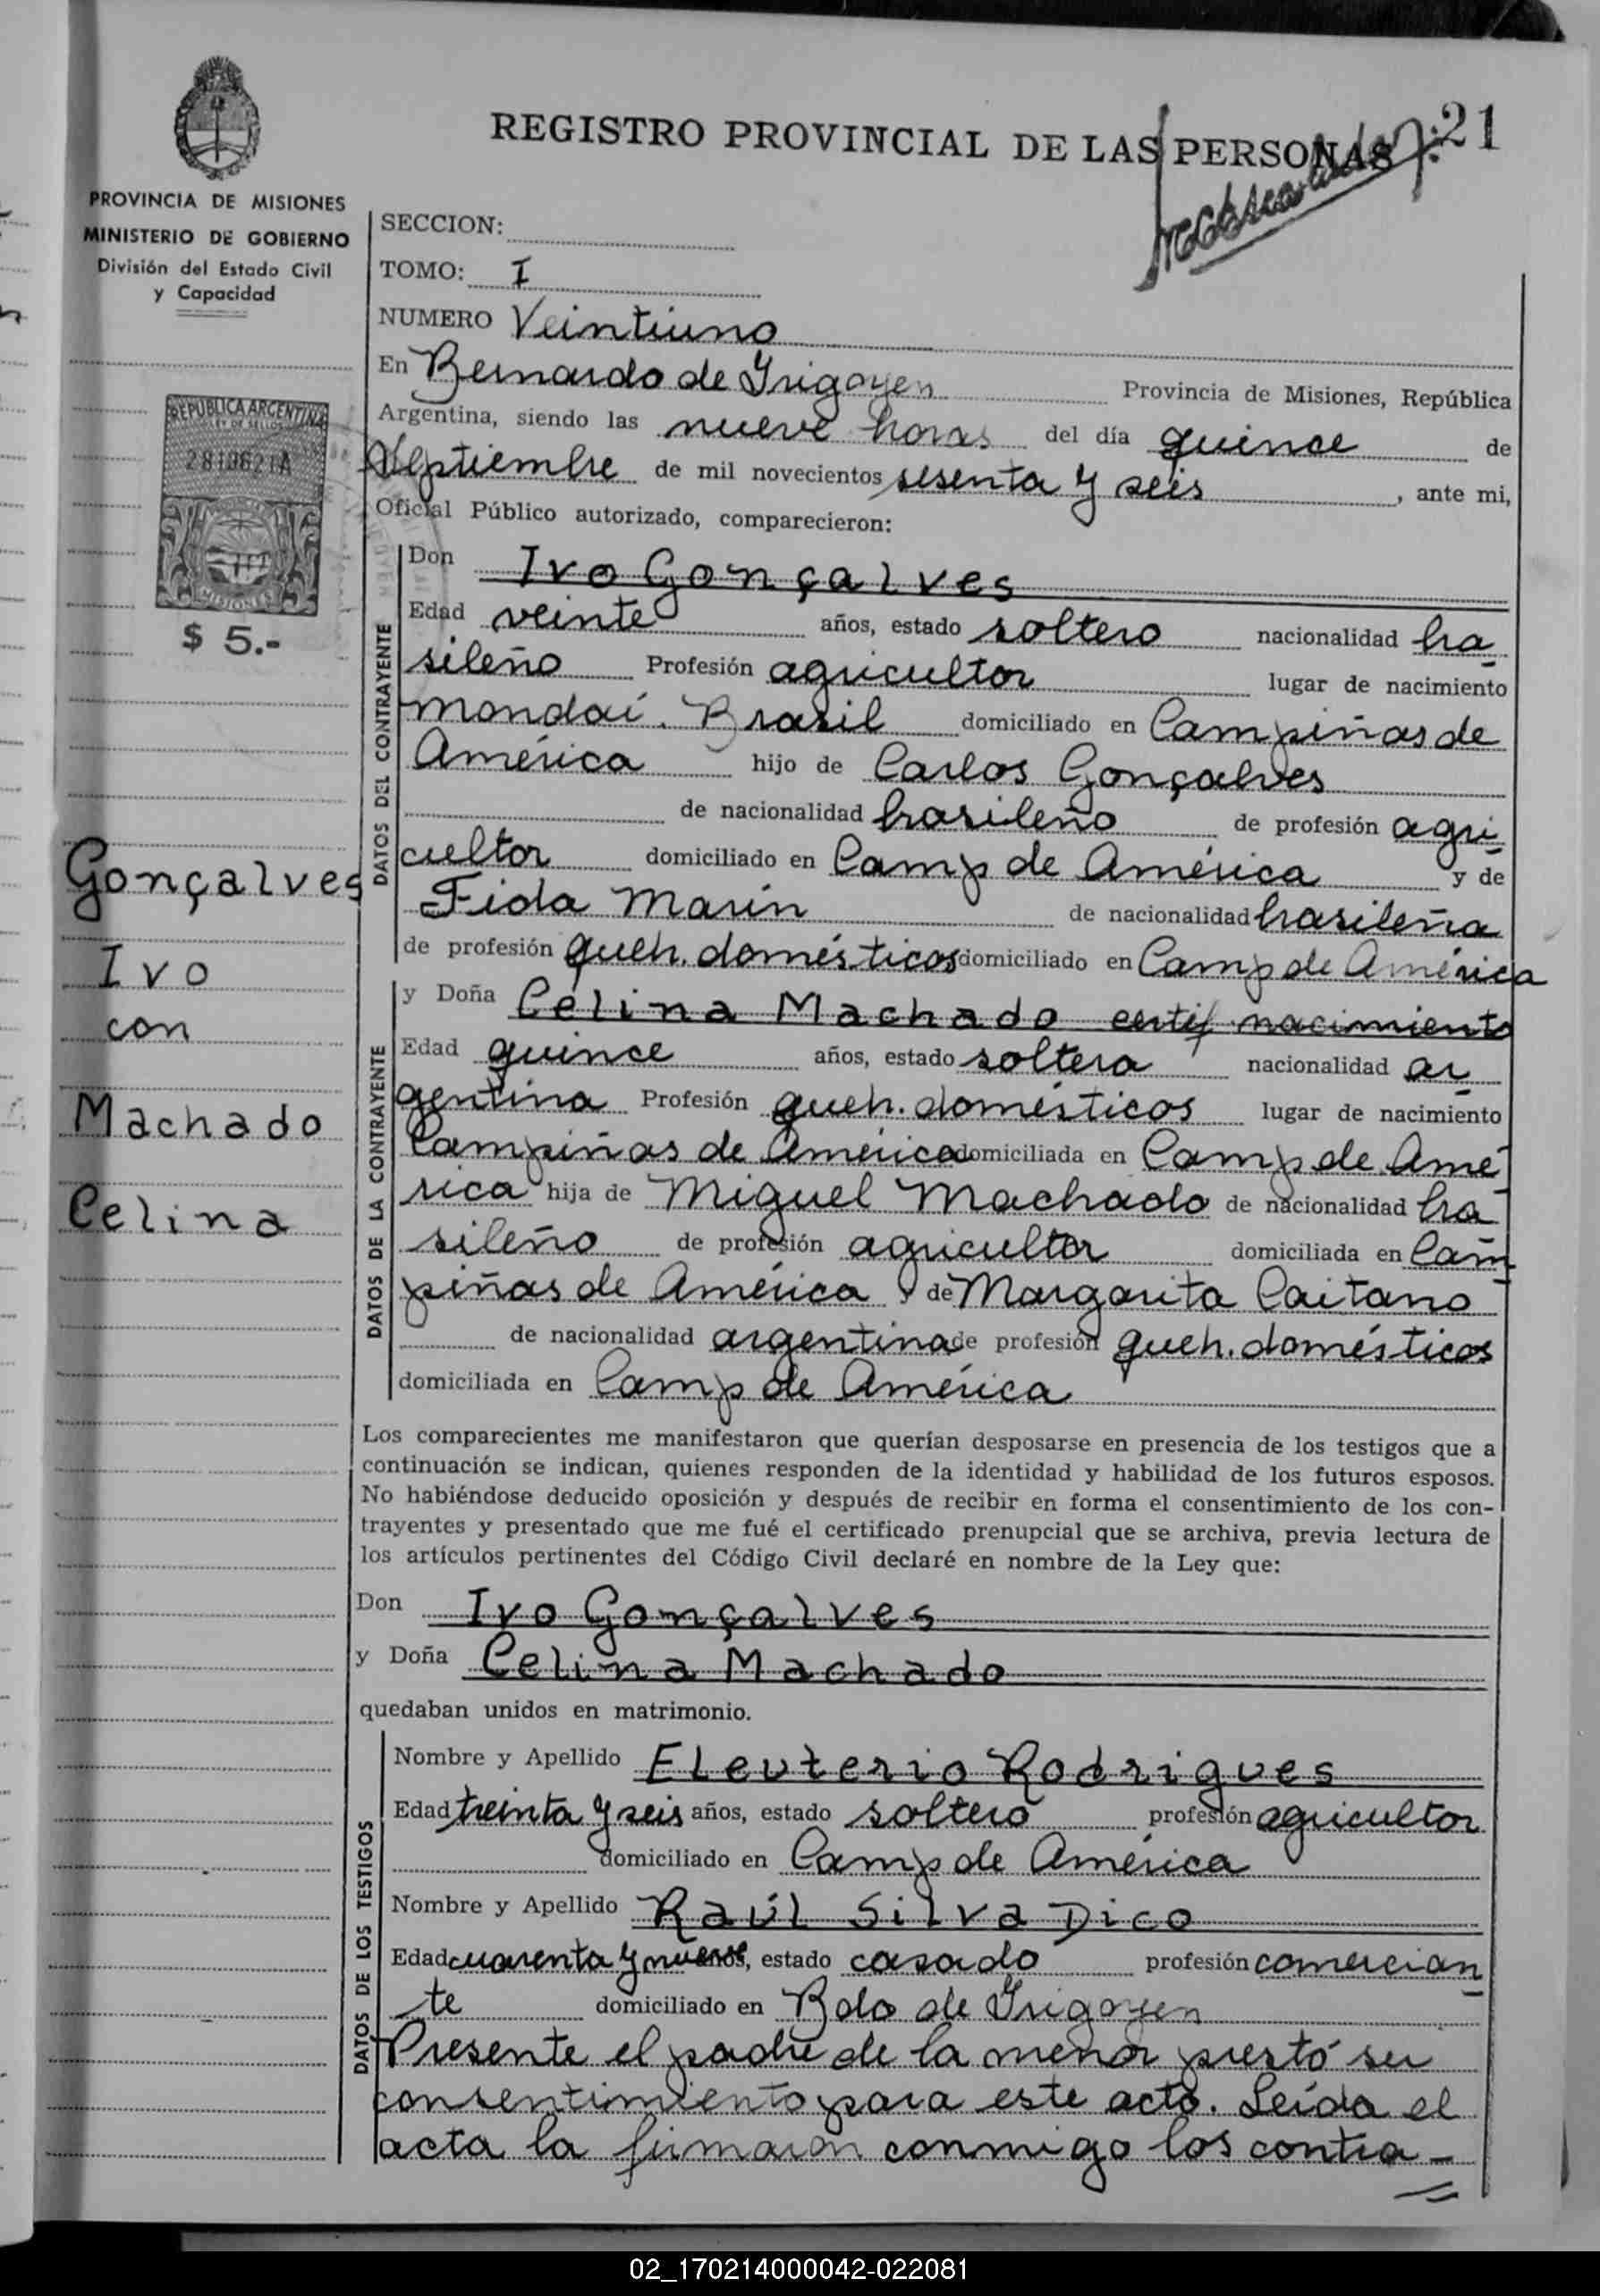 REGISTRO PROVINCIAL DE LAS PERSONAS
21
PROVINCIA DE MISIONES
MINISTERIO DE GOBIERNO
División del Estado Civil
y Capacidad
REPUBLICA ARGENTINA
LEY DE SELLOS
MISIONES
$ 5.-
Gonçalves
Ivo
con
Machado
Celina
SECCION:
TOMO: I
NUMERO Veintiuno
En Bernardo de Irigoyen Provincia de Misiones, República
Argentina, siendo las nueve horas del día quince de
Septiembre de mil novecientos sesenta y seis, ante mi,
Oficial Público autorizado, comparecieron:
DATOS DEL CONTRAYENTE
Don Ivo Gonçalves
Edad veinte años, estado soltero nacionalidad bra
sileño Profesión agricultor lugar de nacimiento
Mondaí. Brasil domiciliado en Campiñas de
América hijo de Carlos Gonçalves
de nacionalidad brasileño de profesión agri
cultor domiciliado en Camp de América y de
Fida Marin de nacionalidad brasileña
de profesión queh. domésticos domiciliado en Camp de América
DATOS DE LA CONTRAYENTE
y Doña Celina Machado certif nacimiento
Edad quince años, estado soltera nacionalidad ar
gentina Profesión queh. domésticos lugar de nacimiento
Campiñas de América domiciliada en Camp de Amé
rica hija de Miguel Machado de nacionalidad bra
sileño de profesión agricultor domiciliada en Cam
piñas de América y de Margarita Caitano
de nacionalidad argentina de profesión queh. domésticos
domiciliada en Camp de América
Los comparecientes me manifestaron que querían desposarse en presencia de los testigos que a
continuación se indican, quienes responden de la identidad y habilidad de los futuros esposos.
No habiéndose deducido oposición y después de recibir en forma el consentimiento de los con-
trayentes y presentado que me fué el certificado prenupcial que se archiva, previa lectura de
los artículos pertinentes del Código Civil declaré en nombre de la Ley que:
Don Ivo Gonçalves
y Doña Celina Machado
quedaban unidos en matrimonio.
DATOS DE LOS TESTIGOS
Nombre y Apellido Eleuterio Rodrigues
Edad treinta y seis años, estado soltero profesión agricultor
domiciliado en Camp de América
Nombre y Apellido Raúl Silva Dico
Edad cuarenta y nueve años, estado casado profesión comercian
te domiciliado en Bdo de Irigoyen
Presente el padre de la menor prestó su
consentimiento para este acto. Leída el
acta la firmaron conmigo los contra-
02_170214000042-022081